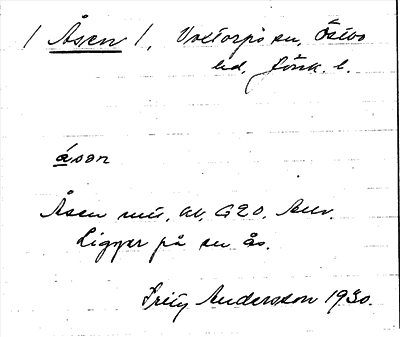 / Åsen /, Voxtorps sn, Östbo
hd, Jönk. l.
åsən
Åsen
Ligger på en ås.
Fritz Andersson 1930.